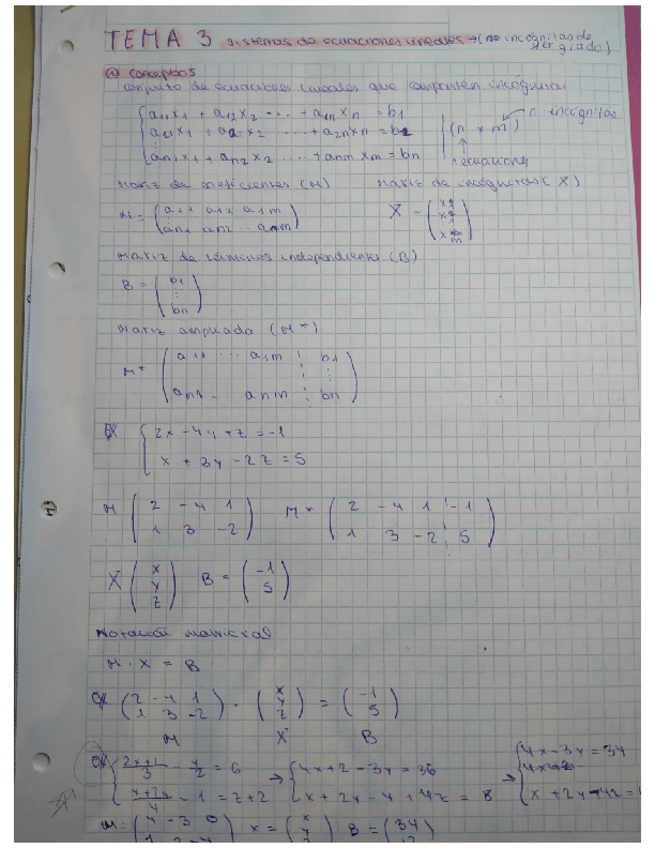 TEMA 3 sistemas de ecuaciones lineales → (nº incognitas de
@ conceptos
conjunto de ecuaciones lineales que comparten incógnitas
a11x1 + a12x2 ---- + a1n xn = b1
a21x1 + a22x2 ----- + a2n xn = b2
an1x1 + an2x2 ---- + anm xm = bn
(n x m)
n incógnitas
n ecuaciones
Matriz de coeficientes (M)
Matriz de incógnitas (X)
M = ( a11 a12 a1m
an1 an2 .. anm )
X = ( x1
x2
xm )
Matriz de términos independientes (B)
B = ( b1
⋮
bn )
Matriz ampliada (M*)
M* ( a11 ... a1m ¦ b1
an1 .. anm ¦ bn )
EX { 2x - 4y + z = -1
x + 3y - 2z = 5
M ( 2 -4 1
1 3 -2 )
M* ( 2 -4 1 ¦ -1
1 3 -2 ¦ 5 )
X ( x
y
z )
B = ( -1
5 )
Notación matricial
M · X = B
EX ( 2 -4 1
1 3 -2 ) · ( x
y
z ) = ( -1
5 )
M X B
EX { 2x+1/3 - y/2 = 6
x+2y/4 - 1 = z+2
→ { 4x+2 - 3y = 36
x + 2y - 4 + 4z = 8
→ { 4x - 3y = 34
x + 2y
M = ( 4 -3 0
X = ( x
y
B = ( 34